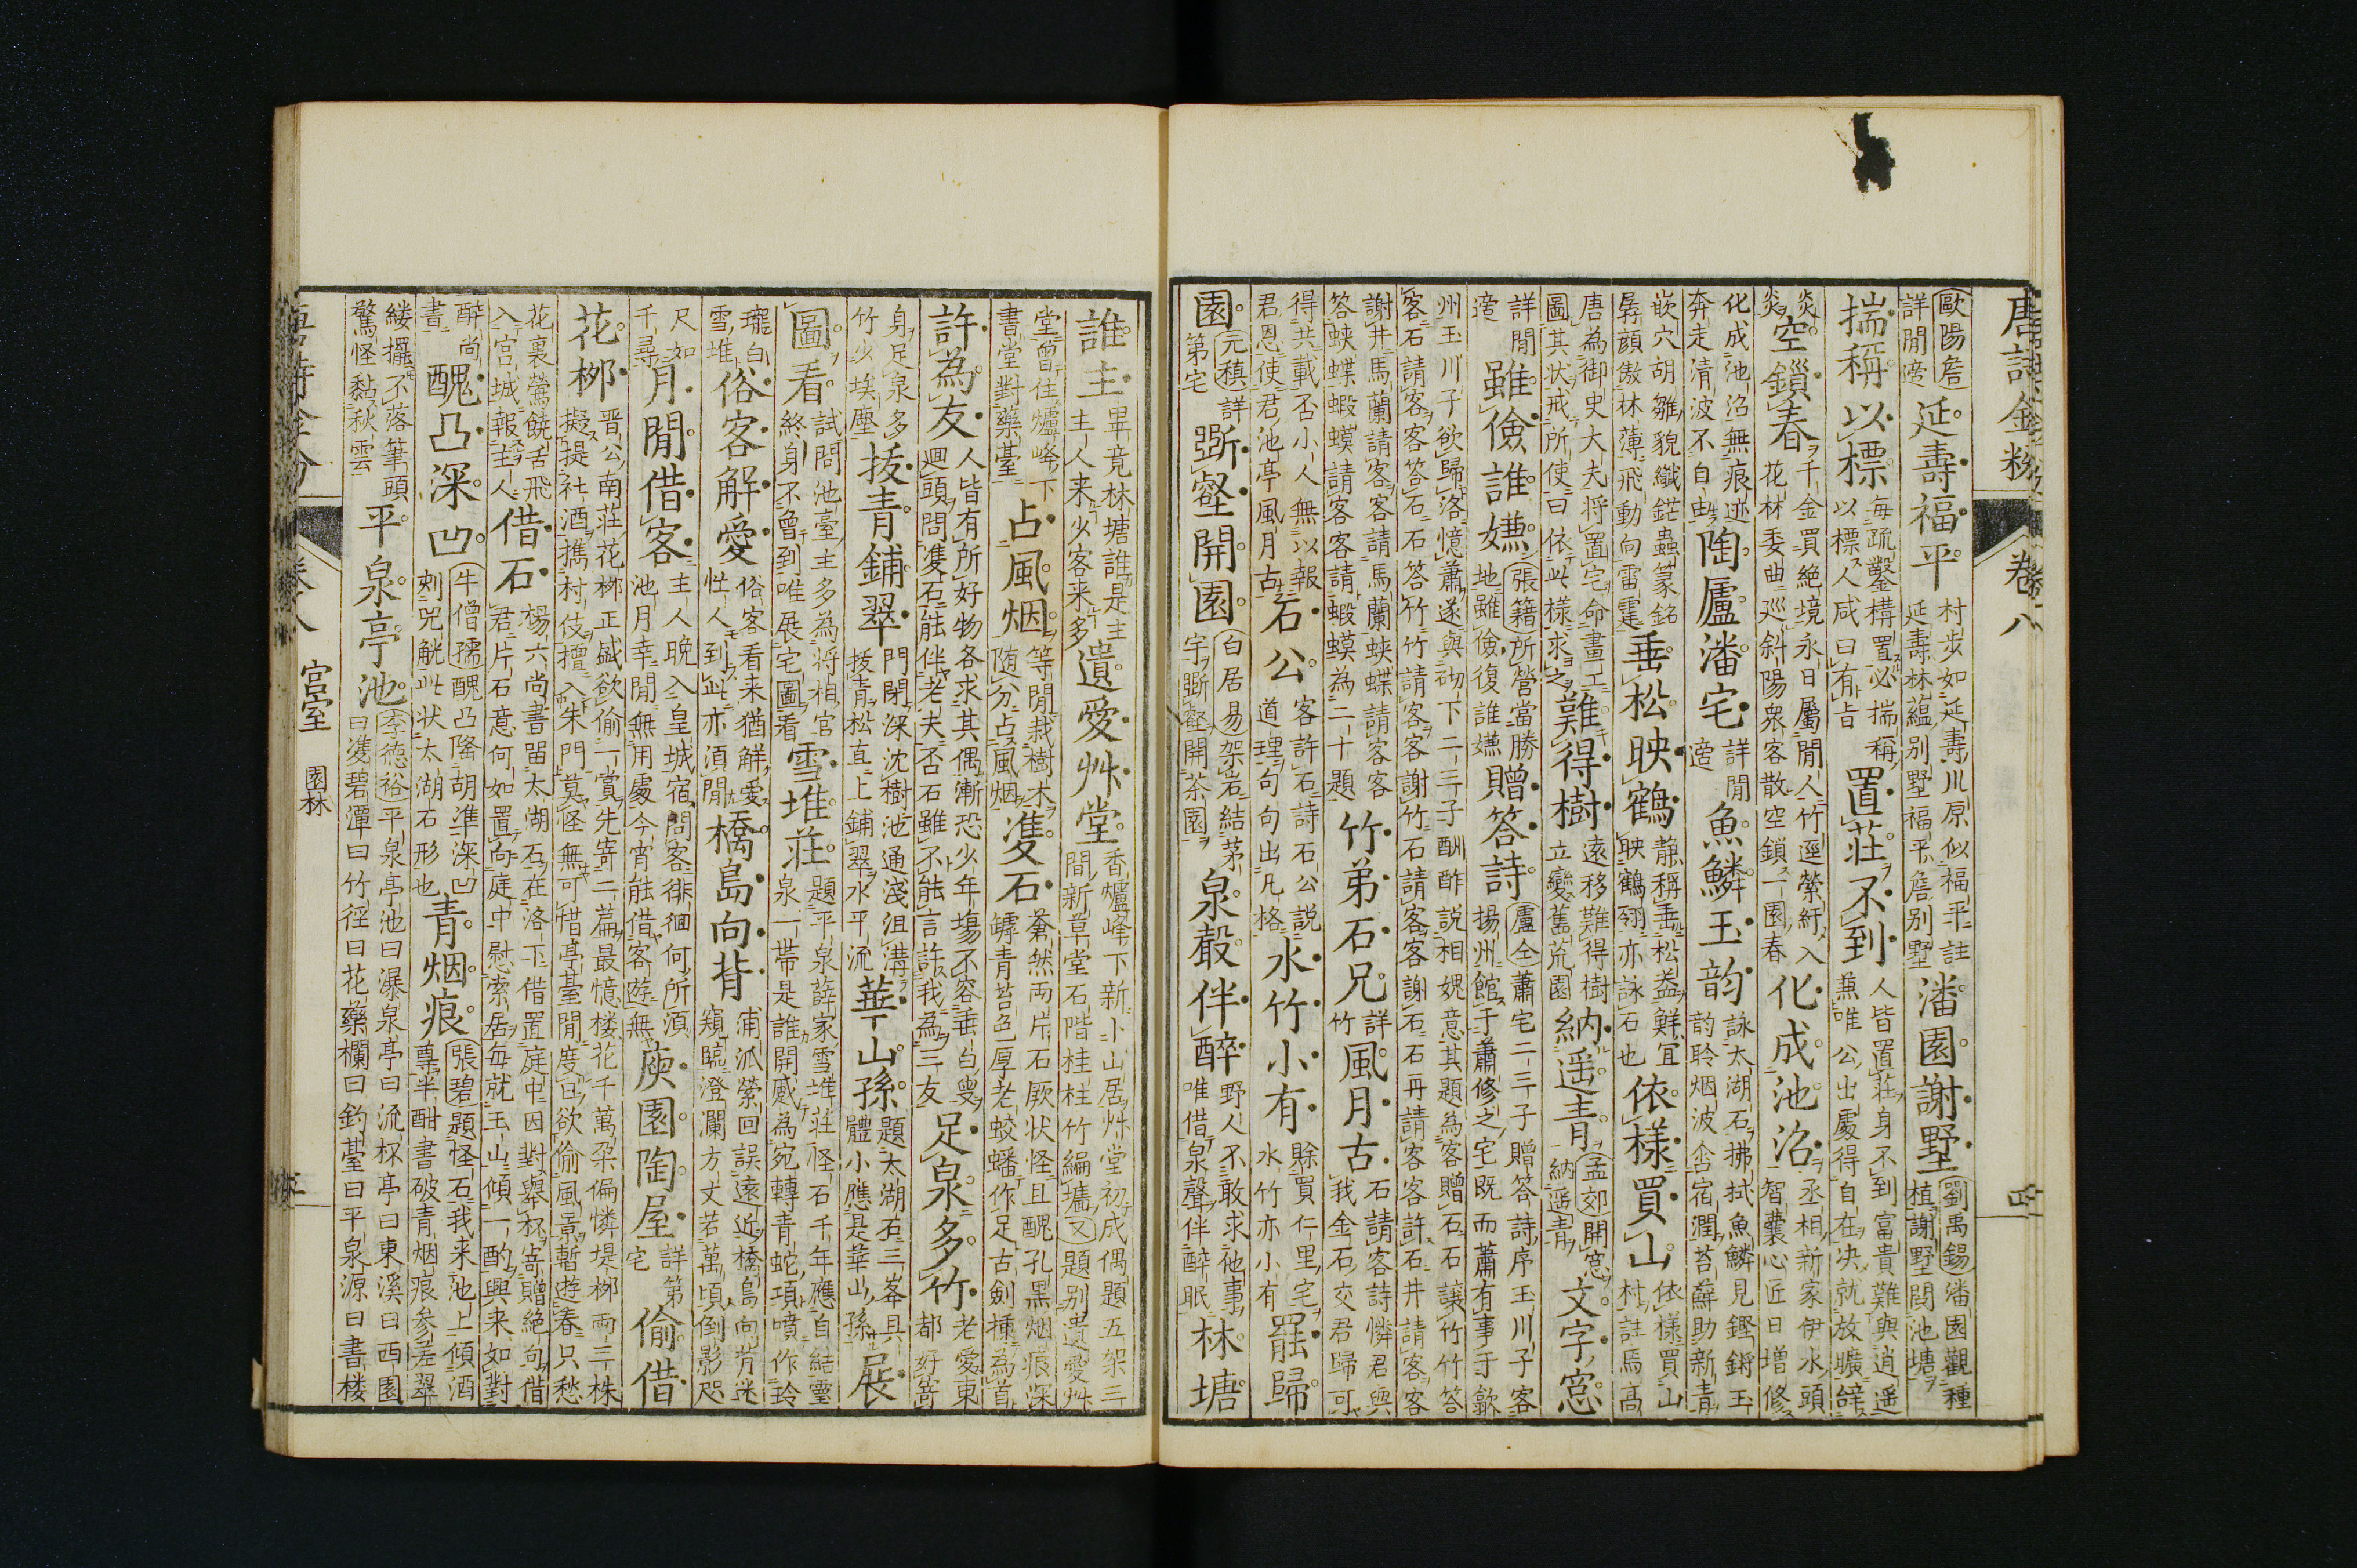 唐詩金粉 卷八 四
歐陽詹
詳閒 延壽福平 村步如延壽川原似福平註
延壽林蘊別墅福平詹別墅 潘園謝墅 劉禹錫 潘園觀種
植謝墅閱池塘
揣稱以標 每疏鑿構置必揣稱
以標人咸曰有旨 置莊不到 人皆置莊身不到富貴難與逍遥
唯公出處得自在决就放曠辭
炎炎 空鎖春 千金買絕境永日屬閒人竹逕縈紆入
花林委曲巡斜陽衆客散空鎖一園春 化成池沼 丞相新家伊水頭
智囊心匠日増修
化成池沼無痕迹
奔走清波不自由 陶廬潘宅 詳閒 魚鱗玉韵 詠太湖石拂拭魚鱗見鏗鏘玉
韵聆烟波含宿潤苔蘚助新青
嵌穴胡雛貌纖鋩蟲篆銘
孱顔傲林薄飛動向雷霆 垂松映鶴 静稱垂松蓋鮮宜
映鶴翎亦詠石也 依樣買山 依樣買山
村註焉高
唐為御史大夫将置宅命畫工
圖其状戒所使曰依此樣求之 難得樹 遠移難得樹
立變舊荒園 納遥青 孟郊 開窓
納遥青 文字窓
詳閒 雖儉誰嫌 張籍 所營當勝
地雖儉復誰嫌 贈答詩 盧仝 蕭宅二三子贈答詩序玉川子客
揚州館于蕭修之宅既而蕭有事于歙
州玉川子欲歸洛憶蕭遂與砌下二三子酬酢説相媿意其題為客贈石石讓竹竹答
客石請客客答石石答竹竹請客客謝竹石請客客謝石石再請客客許石井請客客
謝井馬蘭請客客請馬蘭蛺蝶請客客
答蛺蝶蝦蟆請客客請蝦蟆為二十題 竹弟石兄 詳風
竹 月古 石請客詩憐君與
我金石交君歸可
得共載否小人無以報
君恩使君池亭風月古 石公 客許石詩石公説
道理句句出凡格 水竹小有 賖買仁里宅
水竹亦小有 罷歸
園 元稹 詳
第宅 斵壑開園 白居易 架岩結茅
宇斵壑開茶園 泉聲伴醉 野人不敢求他事
唯借泉聲伴醉眠 林塘
誰主 畢竟林塘誰是主
主人来少客来多 遺愛艸堂 香爐峰下新卜山居艸堂初成偶題五架三
間新草堂石階桂柱竹編墻又題别遺愛艸
堂曾住爐峰下
書堂對藥臺 占風烟 等閒栽樹木
随分占風烟 雙石 蒼然両片石厥状怪且醜孔黒烟痕深
罅青苔色厚老蛟蟠作足古劍揷為首
許為友 人皆有所好物各求其偶漸恐少年塲不容垂白叟
迴頭問雙石能伴老夫否石雖不能言許我為三友 足泉多竹 老愛東
都好寄
身足泉多
竹少埃塵 拔青鋪翠 門閉深沈樹池通淺沮溝
拔青松直上鋪翠水平流 華山孫 題太湖石三峯具
體小應是華山孫 展
圖看 試問池臺主多為将相官
終身不曾到唯展宅圖看 雪堆莊 題平泉薛家雪堆莊怪石千年應自結靈
泉一帶是誰開蹙為宛轉青蛇項噴作玲
瓏白
雪堆 俗客解愛 俗客看来猶解愛
性人到此亦須閒 橋島向背 浦派縈回誤遠近橋島向背迷
窺臨澄瀾方丈若萬頃倒影咫
尺如
千尋 月閒借客 主人晩入皇城宿問客徘徊何所須
池月幸閒無用處今宵能借客遊無 庾園陶屋 詳第
宅 偷借
花栁 晋公南莊花栁正盛欲偷一賞先寄二篇最憶樓花千萬朶偏憐堤栁両三株
擬提社酒携村伎擅入朱門莫怪無可惜亭臺閒度日欲偷風景暫遊春只愁
花裏鶯饒舌飛
入宮城報主人 借石 楊六尚書留太湖石在洛下借置庭中因對舉杯寄贈絶句借
君片石意何如置向庭中慰索居毎就玉山傾一酌興来如對
醉尚
書 醜凸深凹 牛僧孺 醜凸隆胡準深凹
刻兕觥此状太湖石形也 青烟痕 張碧 題怪石我来池上傾酒
尊半酣書破青烟痕参差翠
縷擺不落筆頭
驚怪黏秋雲 平泉亭池 李徳裕 平泉亭池曰瀑泉亭曰流杯亭曰東溪曰西園
曰雙碧潭曰竹徑曰花藥欄曰釣臺曰平泉源曰書楼
卷八 宮室 園林